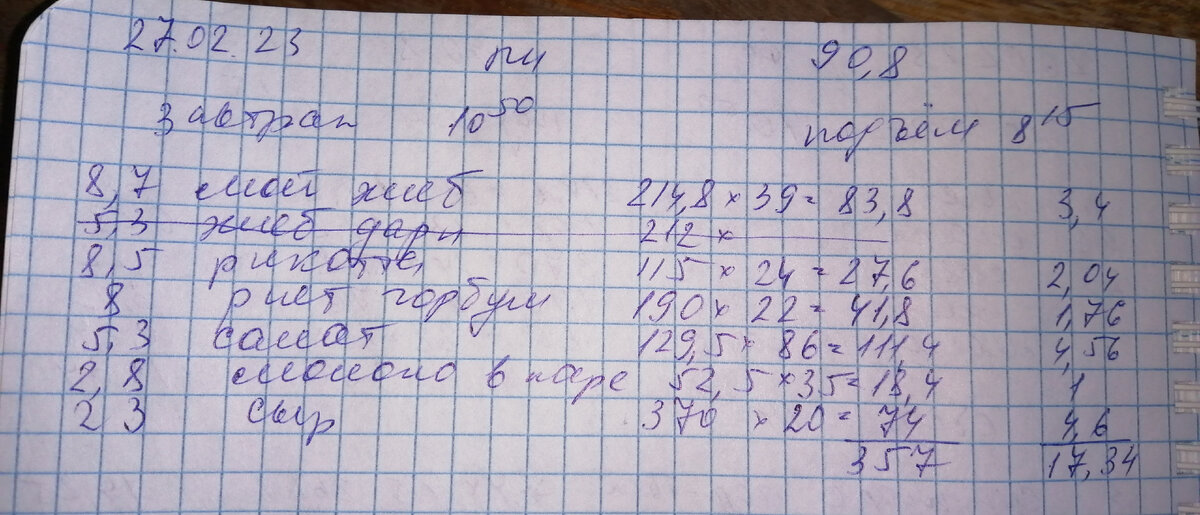 27.02.23 пн 90,8
Завтрак 10⁵⁰ подъём 8¹⁵
8,7 мой хлеб 214,8 × 39 = 83,8 3,4
5,3 хлеб дарн 212 ×
8,5 рикотта 115 × 24 = 27,6 2,04
8 риет горбуш 190 × 22 = 41,8 1,76
5,3 салат 129,5 × 86 = 111,4 4,56
2,8 молоко в кофе 52,5 × 35 = 18,4 1
23 сыр 370 × 20 = 74 4,6
357 17,34